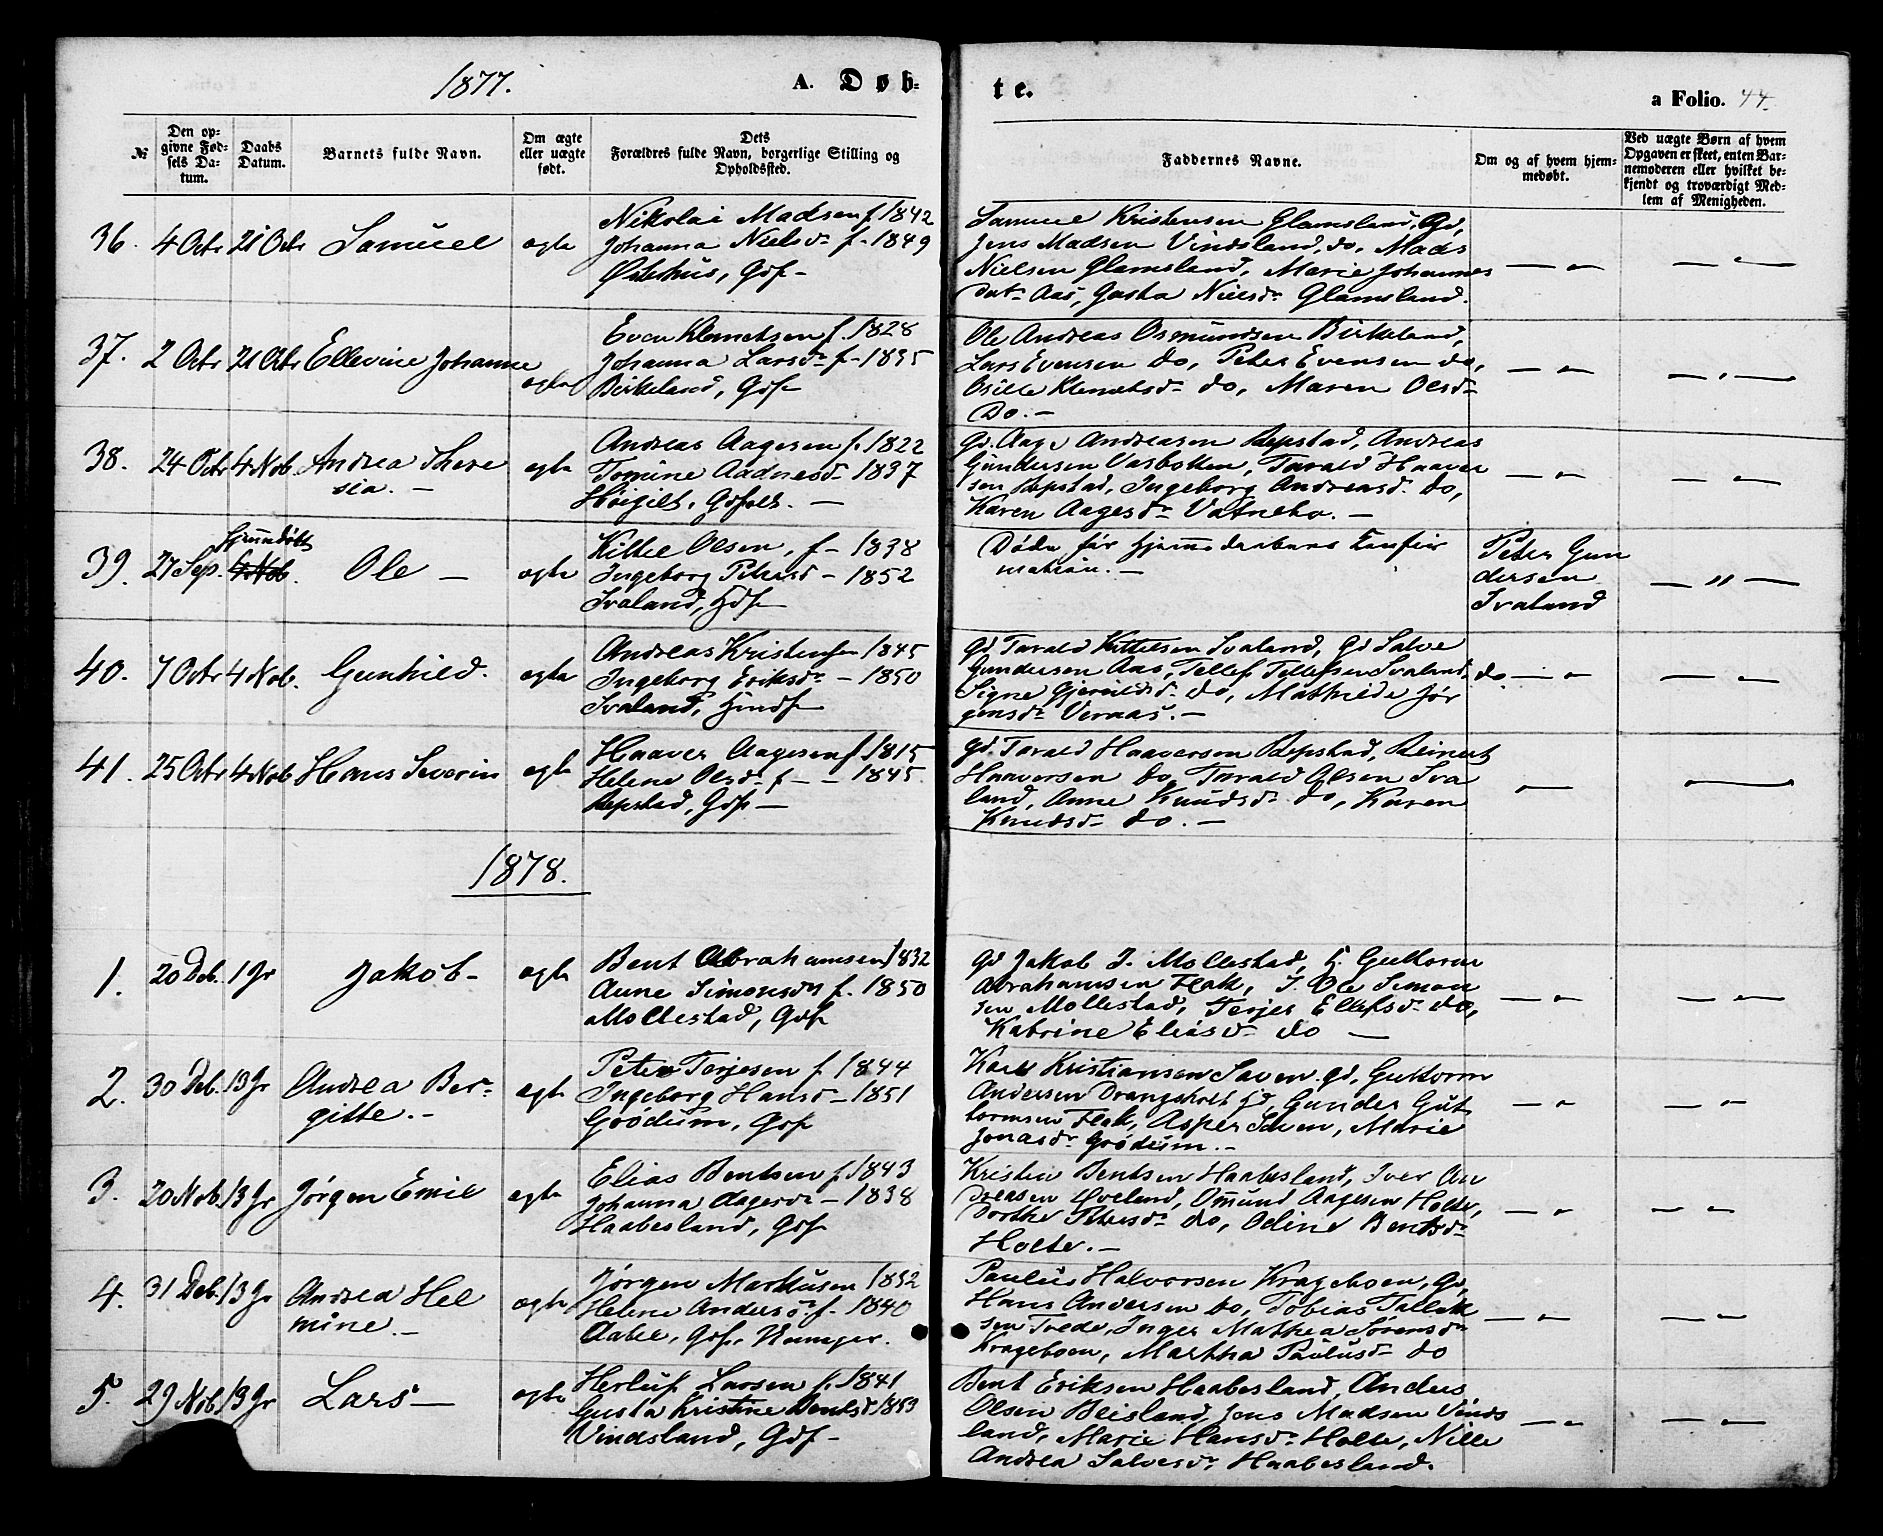 1877.
A. Døb-
te.
a Folio. 44.
№
Den op-
givne Fød-
sels Da-
tum.
Daabs
Datum.
Barnets fulde Navn.
Om ægte
eller uægte
født.
Dets
Forældres fulde Navn, borgerlige Stilling og
Opholdssted.
Faddernes Navne.
Om og af hvem hjem-
medøbt.
Ved uægte Børn af hvem
Opgaven er skeet, enten Bar-
nemoderen eller hvilket be-
kjendt og troværdigt Med-
lem af Menigheden.
36. 4 Octr 21 Octr Samuel ægte
Nikolai Madsen f. 1842
Johanna Nielsdr f. 1849
Gdf
Samuel Kristensen Glamsland, Gd,
Jens Madsen Vindsland, do, Mads
Nielsen Glamsland, Marie Johannes
datr Aas, Gusta Nielsdr Glamsland.
37. 2 Octr 21 Octr Ellevine Johanne ægte
Even Klemetsen f. 1828
Johanna Larsdr f. 1835
Birkeland, Gdf
Ole Andreas Osmundsen Birkeland,
Lars Evensen do, Peter Evensen do,
Klemetsdr do, Maren Olsdr
Do. —
38. 24 Octr 4 Nob Andrea There
sia. —
ægte
Andreas Aagesen f. 1822
Tomine Aadnesdr 1837
Gd. Aage Andreasen Repstad, Andreas
Gundersen Vasbotten, Tarald Haaver
sen Repstad, Ingeborg Andreasdr do,
Karen Aagesdr Vatnebo. —
39. 27 Sep. Hjemdøbt
4 Nob. Ole — ægte
Kittel Olsen, f — 1838
Ingeborg Petersd — 1852
Ivaland, Hdf
Døde før Hjemmedaabens Konfir
mation. —
Peter Gun
dersen
Ivaland
— " —
40. 7 Octr 4 Nob. Gunhild. ægte
Andreas Kristensen 1845
Ingeborg Eriksdr — 1850
Ivaland,
Gd Tarald Kittelsen Ivaland, Gd Salve
Gundersen Aas, Tellef Tellefsen Ivaland, do
Signe do, Mathilde Jør
gensdr Veraas. —
41. 25 Octr 4 Nob Hans Severin ægte
Haaver Aagesen f 1815
Helene Olsdr f — 1845.
Repstad, Gdf —
Gd. Tarald Haaversen Repstad, Reinert
Haaversen do, Tarald Olsen Iva
land, Anne Knudsdr do, Karen
Knudsdr do. —
1878.
1. 20 Deb. 1 Jr Jakob — ægte
Bent Abrahamsen 1832
Anne Simonsdr f. 1850
Mollestad, Gdf
Gd Jakob J. Mollestad, Guttorm
Abrahamsen Flak, J. Ole Simon
sen Mollestad, Terjer Ellefsdr do,
Katrine Eliasdr do —
2. 30 Deb. 13 Jr Andrea Ber-
gitte. —
ægte
Peter Terjesen f 1844
Ingeborg Hansd — 1851
Grødum, Gdf
Karl Kristiansen Saven. Gd, Guttorm
Andersen Drangsholt Gd Gunder Gut
tormsen Flak, Asper Saven, Marie
Jonasdr Grødum. —
3. 20 Nob. 13 Jr Jørgen Emil ægte
Elias Bentsen f. 1843
Johanna Aagesdr — 1838
Haabesland, Gdf
Kristen Bentsen Haabesland, Iver An
dreasen Øveland, Omund Aagesen Holte,
Dorthe Petersdr do, Odine Bentsdr
Holte. —
4. 31 Deb. 13 Jr Andrea Hel
mine. —
ægte
Jørgen Markusen 1832
Helene Andersdr f. 1840
Gdf,
Paulus Halvorsen Krageboen, Gd,
Hans Andersen do, Tobias Tallak
sen Tvede, Inger Mathea Sørensdr
Krageboen, Martha Paulusdr do
5. 29 Nob. 13 Jr Lars — ægte
Herluf Larsen f. 1841
Gusta Kristine Bentsd 1853
Vindsland, Gdf —
Bent Eriksen Haabesland, Anders
Olsen Beisland, Jens Madsen Vinds
land, Marie Hansdr Holte, Nille
Andrea Salvesdr Haabesland.